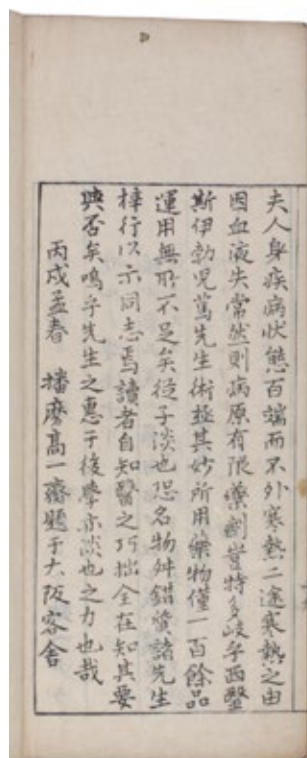 夫人身疾病状態百端而不外寒熱二途寒熱之由
因血液失常然則病原有限藥劑豈特多岐乎西醫
斯伊勃児篤先生術極其妙所用藥物僅一百餘品
運用無所不足矣從子淡也恐名物舛錯資諸先生
梓行以示同志焉讀者自知醫之巧拙全在知其要
與否矣嗚乎先生之惠于後學亦淡也之力也哉
丙戌孟春 播磨高一齋題于大阪客舎